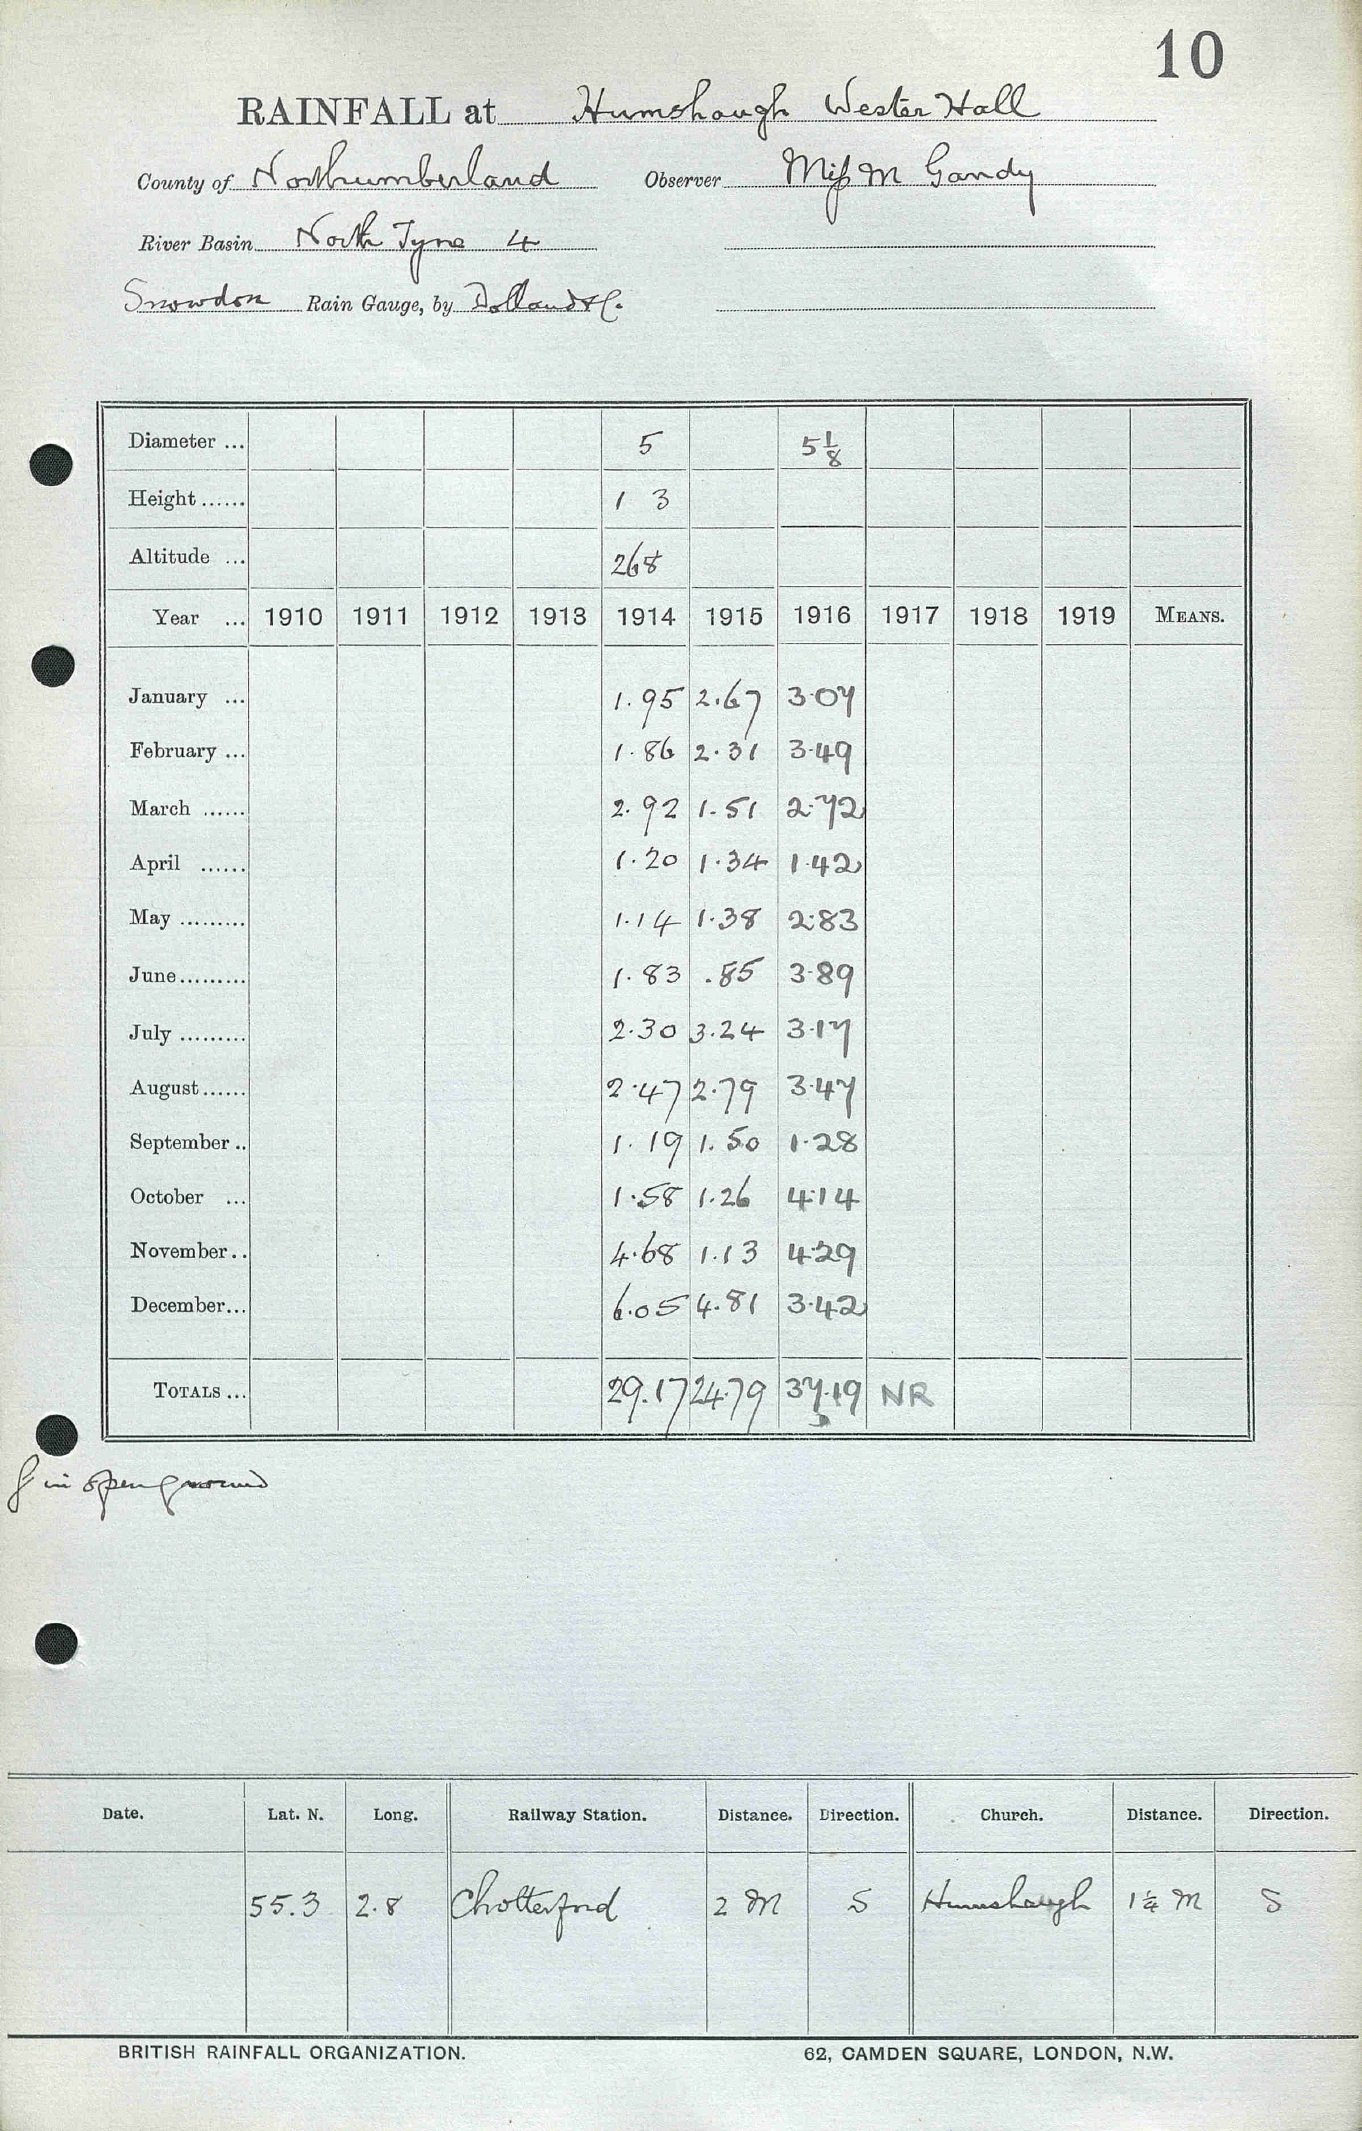 10
RAINFALL at Humshaugh Wester Hall
County of Northumberland Observer Miss M Gandy
River Basin North Tyne 4
Snowdon Rain Gauge, by Dolland & Co.
Diameter ... 5 5 1/8
Height ...... 1 3
Altitude ... 268
Year ... 1910 1911 1912 1913 1914 1915 1916 1917 1918 1919 MEANS.
January ... 1.95 2.67 3.07
February ... 1.86 2.31 3.49
March ...... 2.92 1.51 2.72
April ...... 1.20 1.34 1.42
May ......... 1.14 1.38 2.83
June ......... 1.83 .85 3.89
July ......... 2.30 3.24 3.17
August ...... 2.47 2.79 3.47
September .. 1.19 1.50 1.28
October ... 1.58 1.26 4.14
November .. 4.68 1.13 4.29
December ... 6.05 4.81 3.42
TOTALS ... 29.17 24.79 37.19 NR
G in open ground
Date. Lat. N. Long. Railway Station. Distance. Direction. Church. Distance. Direction.
55.3 2.8 Chollerford 2 M S Humshaugh 1 1/4 M S
BRITISH RAINFALL ORGANIZATION. 62, CAMDEN SQUARE, LONDON, N.W.